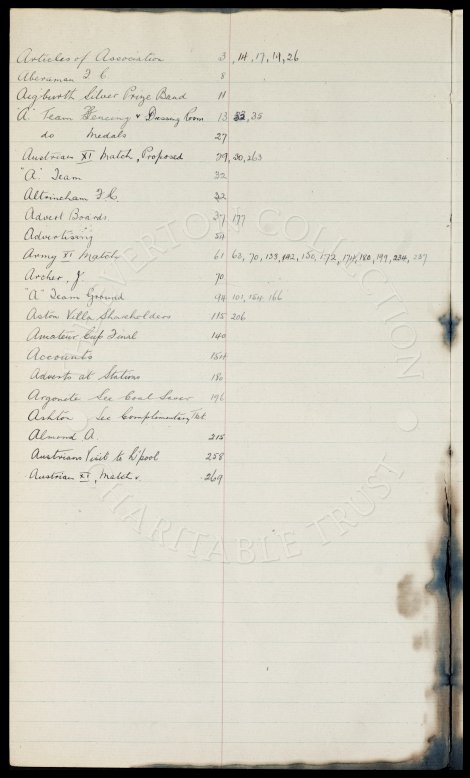 Articles of Association 3, 14, 17, 19, 26
Aberaman F. C. 8
Aigburth Silver Prize Band 11
"A" Team Fencing & Dressing Room 13 33, 35
do Medals 27
Austrian XI Match, Proposed 29, 30, 263
"A" Team 32
Altrincham F. C. 32
Advert Boards 37 177
Advertising 54
Army XI Match 61 63, 70, 138, 142, 150, 172, 174, 180, 199, 234, 237
Archer, J. 70
"A" Team Ground 94 101, 154, 166
Aston Villa Shareholders 115 206
Amateur Cup Final 140
Accounts 154
Adverts at Stations 180
Argonete See Coal Saver 196
Ashton See Complimentary Tkt
Almond A. 215
Austrians Visit to L'pool 258
Austrian XI, Match v. 269
EVERTON COLLECTION
CHARITABLE TRUST